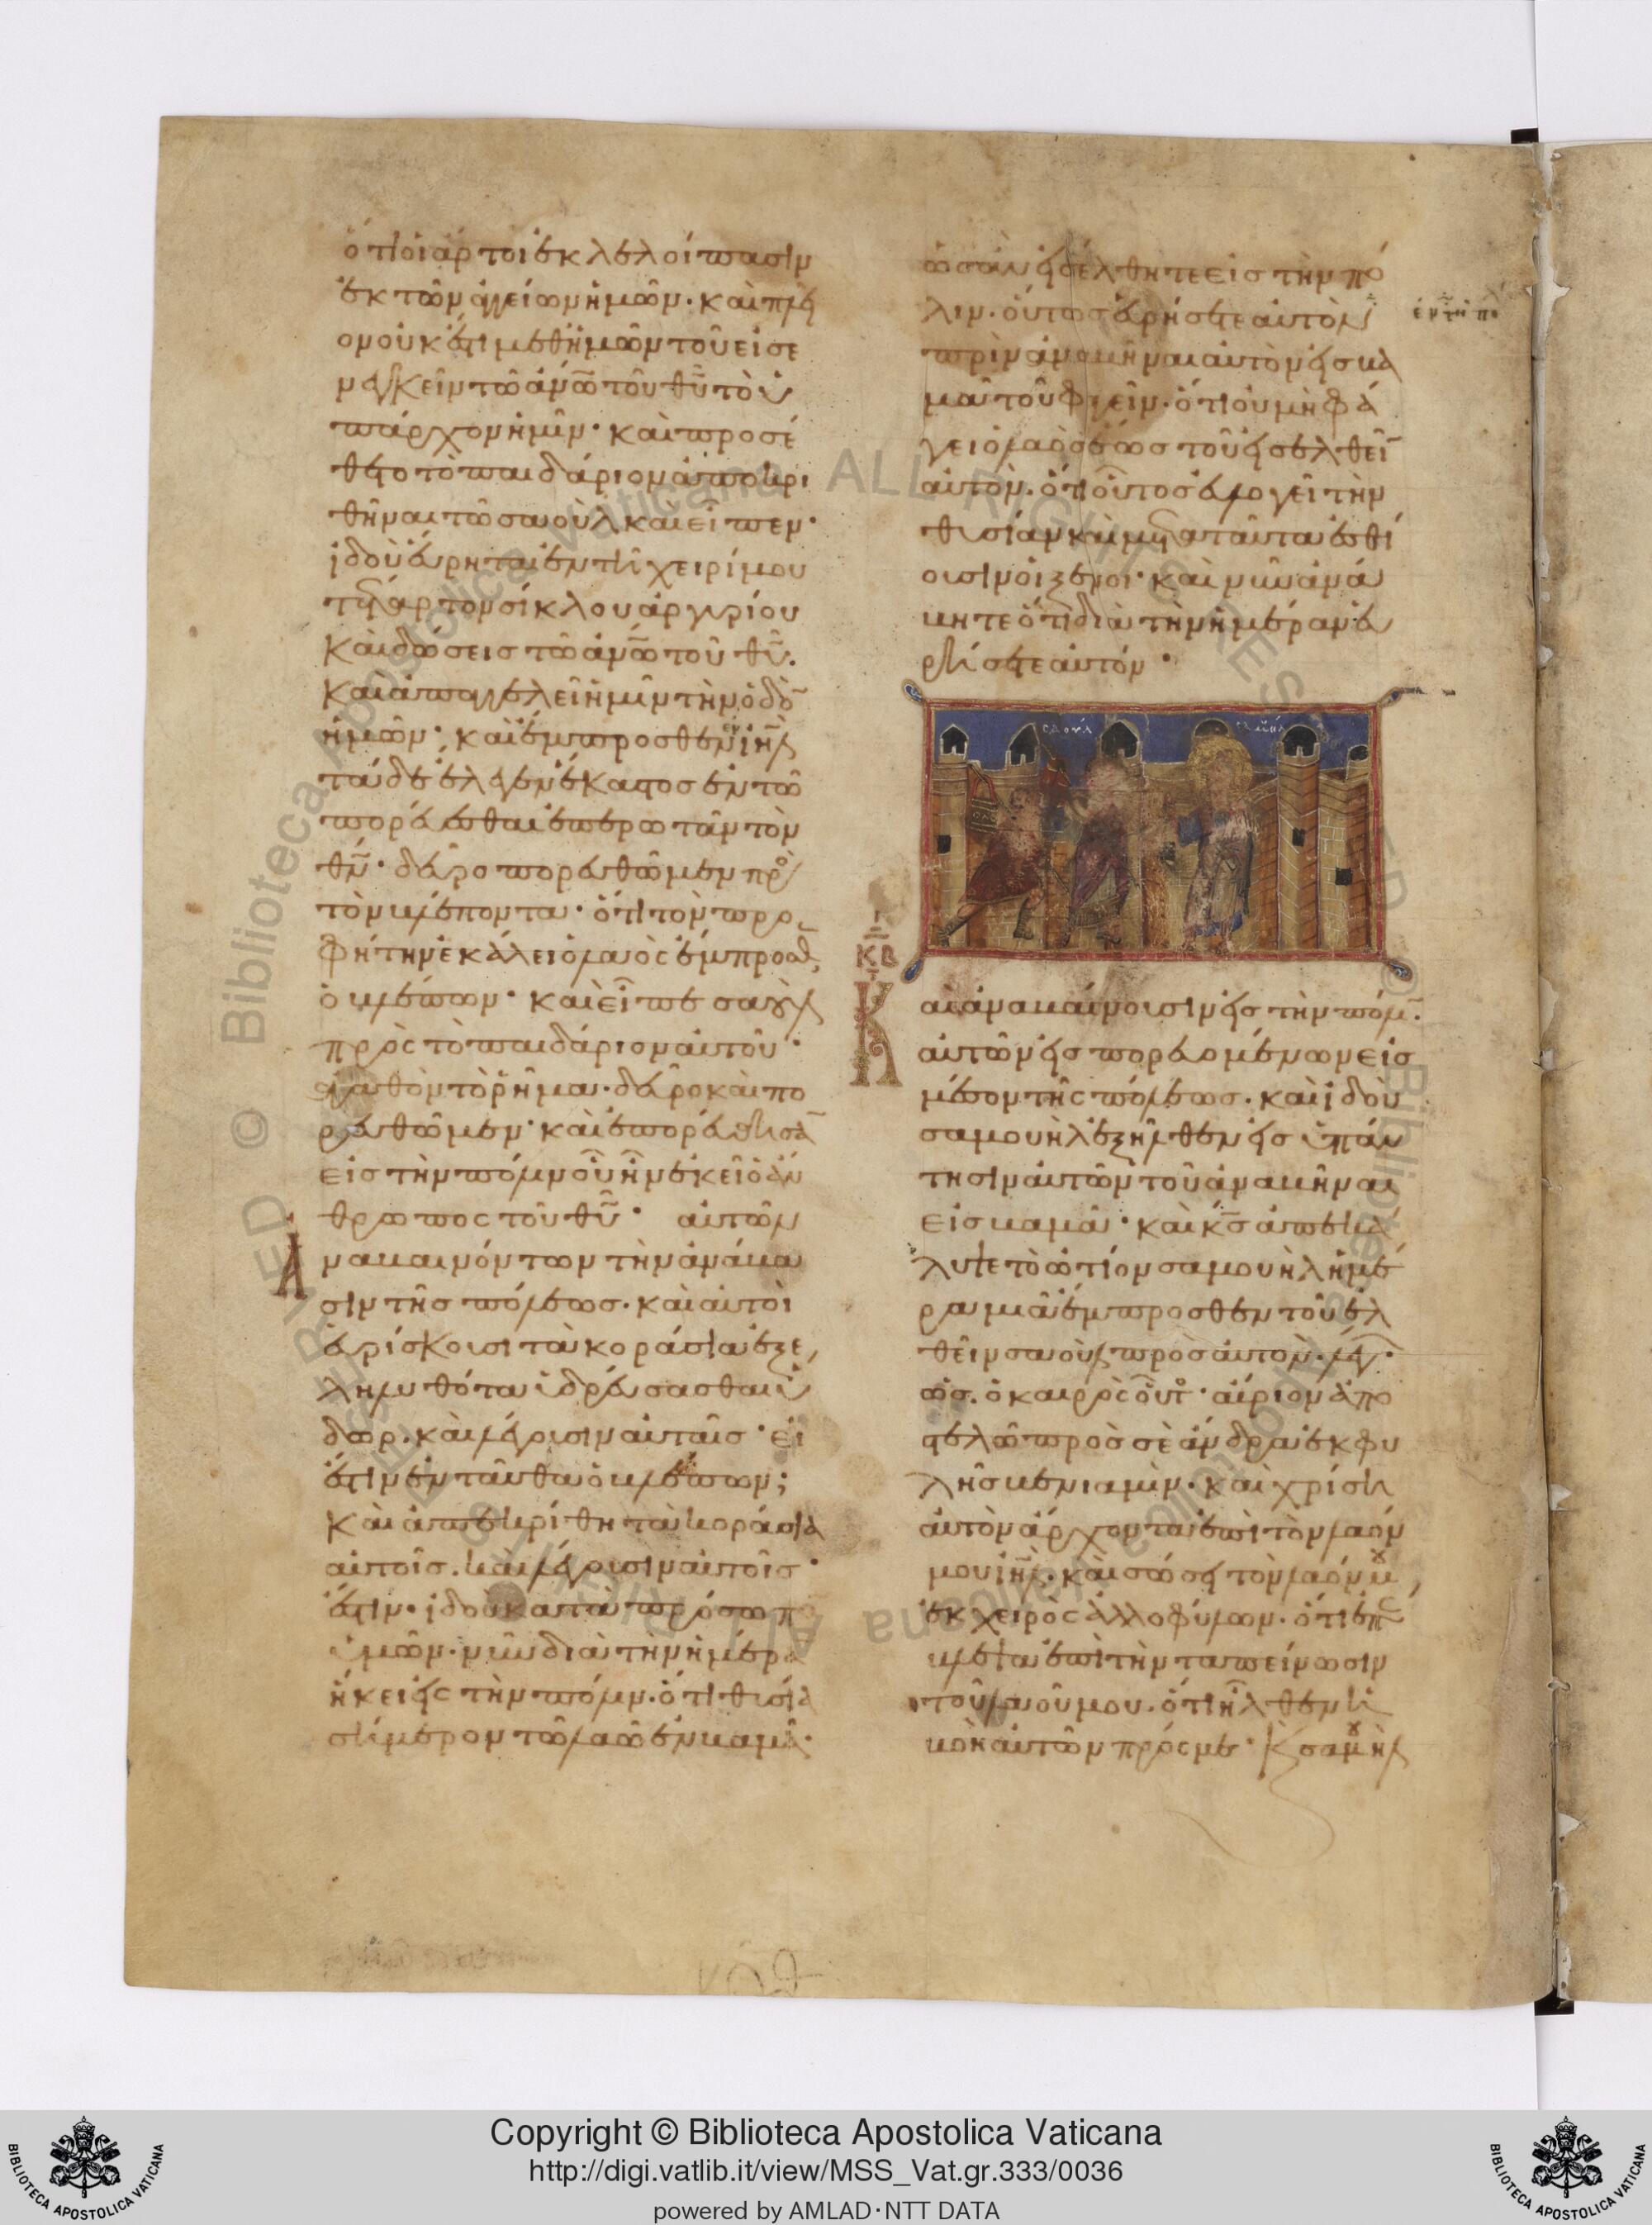 ὅτι οἱ ἄρτοι ἐκλελοίπασιν
ἐκ τῶν ἀγγείων ἡμῶν· καὶ πλεῖ
ον οὐκ ἔστι μεθ' ἡμῶν τοῦ εἰσε
νεγκεῖν τῶ ἀν͞ω τοῦ θ͞υ τὸ ὑ
πάρχον ἡμῖν· καὶ προσέ
θετο τὸ παιδάριον ἀποκρι
θῆναι τῶ σαοὺλ καὶ εἶπεν·
ἰδοὺ εὕρηται ἐν τῆ χειρί μου
τέταρτον σίκλου ἀργυρίου
καὶ δώσεις τῶ ἀν͞ω τοῦ θ͞υ.
καὶ ἀπαγγελεῖ ἡμῖν τὴν ὁδὸ
ἡμῶν· καὶ ἔμπροσθεν ἐν ι͞ηλ
τάδε ἔλεγεν ἕκαστος ἐν τῶ
πορεύεσθαι ἐπερωτᾶν τὸν
θ͞ν· δεῦρο πορευθῶμεν πρὸ
τὸν βλέποντα· ὅτι τὸν προ
φήτην ἐκάλει ὁ λαὸς ἔμπροσθ
ὁ βλέπων· καὶ εἶπε σαοὺλ
πρὸς τὸ παιδάριον αὐτοῦ·
ἀγαθὸν τὸ ῥῆμα· δεῦρο καὶ πο
ρευθῶμεν· καὶ ἐπορεύθησα
εἰς τὴν πόλιν οὗ ἦν ἐκεῖ ὁ ἄν
θρωπος τοῦ θ͞υ· αὐτῶν
Ἀναβαινόντων τὴν ἀνάβα
σιν τῆς πόλεως. καὶ αὐτοὶ
εὑρίσκουσι τὰ κοράσια ἐξε
ληλυθότα ὑδρεύσασθαι ὕ
δωρ. καὶ λέγουσιν αὐταῖς· εἰ
ἔστιν ἐνταῦθα ὁ βλέπων;
καὶ ἀπεκρίθη τὰ κοράσια
αὐτοῖς. καὶ λέγουσιν αὐτοῖς·
ἔστιν· ἰδοὺ κατὰ πρόσωπ
ὑμῶν· νῦν διὰ τὴν ἡμέρα
ἥκει εἰς τὴν πόλιν. ὅτι θυσία
σήμερον τῶ λαῶ ἐν βαμᾶ·
ὡς ἂν εἰσέλθητε εἰς τὴν πό
λιν· οὕτως εὑρήσετε αὐτὸν
ἐν τῆ πόλ
πρὶν ἀναβῆναι αὐτὸν εἰς βα
μᾶ τοῦ φαγεῖν. ὅτι οὐ μὴ φά
γει ὁ λαὸς ἕως τοῦ εἰσελθεῖ
αὐτὸν. ὅτι οὗτος εὐλογεῖ τὴν
θυσίαν καὶ μετὰ ταῦτα ἐσθί
ουσιν οἱ ξένοι· καὶ νῦν ἀνά
βητε ὅτι διὰ τὴν ἡμέραν εὑ
ρήσετε αὐτόν·
σαούλ
σαμουήλ
ΚΒ
Καὶ ἀναβαίνουσιν εἰς τὴν πόλι·
αὐτῶν εἰσπορευομένων εἰς
μέσον τῆς πόλεως. καὶ ἰδοὺ
σαμουὴλ ἐξῆλθεν εἰς ὑπάν
τησιν αὐτῶν τοῦ ἀναβῆναι
εἰς βαμᾶ· καὶ κ͞ς ἀπεκά
λυψε τὸ ὠτίον σαμουὴλ ἡμέ
ρα μιᾶ ἔμπροσθεν τοῦ ἐλ
θεῖν σαοὺλ πρὸς αὐτὸν. λέγ·
ὡς. ὁ καιρὸς οὗτ· αὔριον ἀπο
στελῶ πρὸς σὲ ἄνδρα ἐκ φυ
λῆς βενιαμὶν. καὶ χρίση
αὐτὸν ἄρχοντα ἐπὶ τὸν λαόν
μου ι͞ηλ. καὶ σώσει τὸν λαόν μου
ἐκ χειρὸς ἀλλοφύλων. ὅτι ἐπ
έβλεψα ἐπὶ τὴν ταπείνωσιν
τοῦ λαοῦ μου. ὅτι ἦλθεν ἡ
βοὴ αὐτῶν πρός με· κ̀ σαμουὴλ
Copyright © Biblioteca Apostolica Vaticana
http://digi.vatlib.it/view/MSS_Vat.gr.333/0036
powered by AMLAD·NTT DATA
BIBLIOTECA APOSTOLICA VATICANA
BIBLIOTECA APOSTOLICA VATICANA